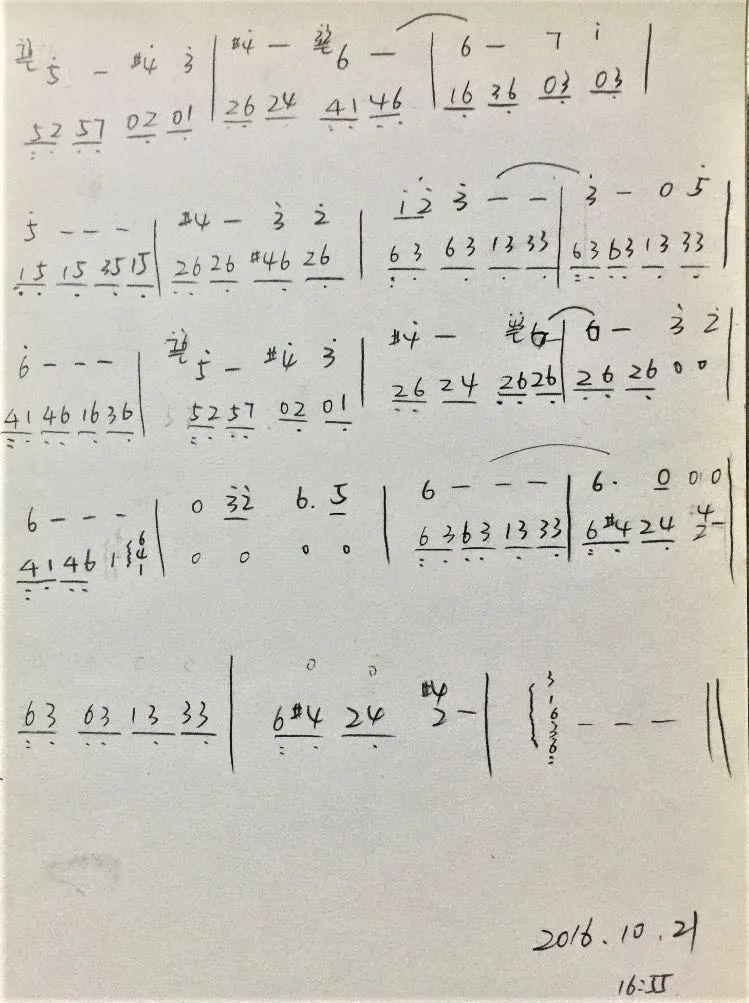 5 - #4 3 | #4 - 6 - | 6 - 7 1 |
52 57 02 01 | 26 24 41 46 | 16 36 03 03 |
5 - - - | #4 - 3 2 | 12 3 - - | 3 - 0 5 |
15 15 35 15 | 26 26 #46 26 | 63 63 13 33 | 63 63 13 33 |
6 - - - | 5 - #4 3 | #4 - 6 | 6 - 3 2 |
41 46 16 36 | 52 57 02 01 | 26 24 26 26 | 26 26 0 0 |
6 - - - | 0 32 6. 5 | 6 - - - | 6. 0 0 0 |
41 46 1 641 | 0 0 0 0 | 63 63 13 33 | 6#4 24 42 - |
0 0
63 63 13 33 | 6#4 24 #42 - | 31636 - - - ||
2016.10.21
16:55